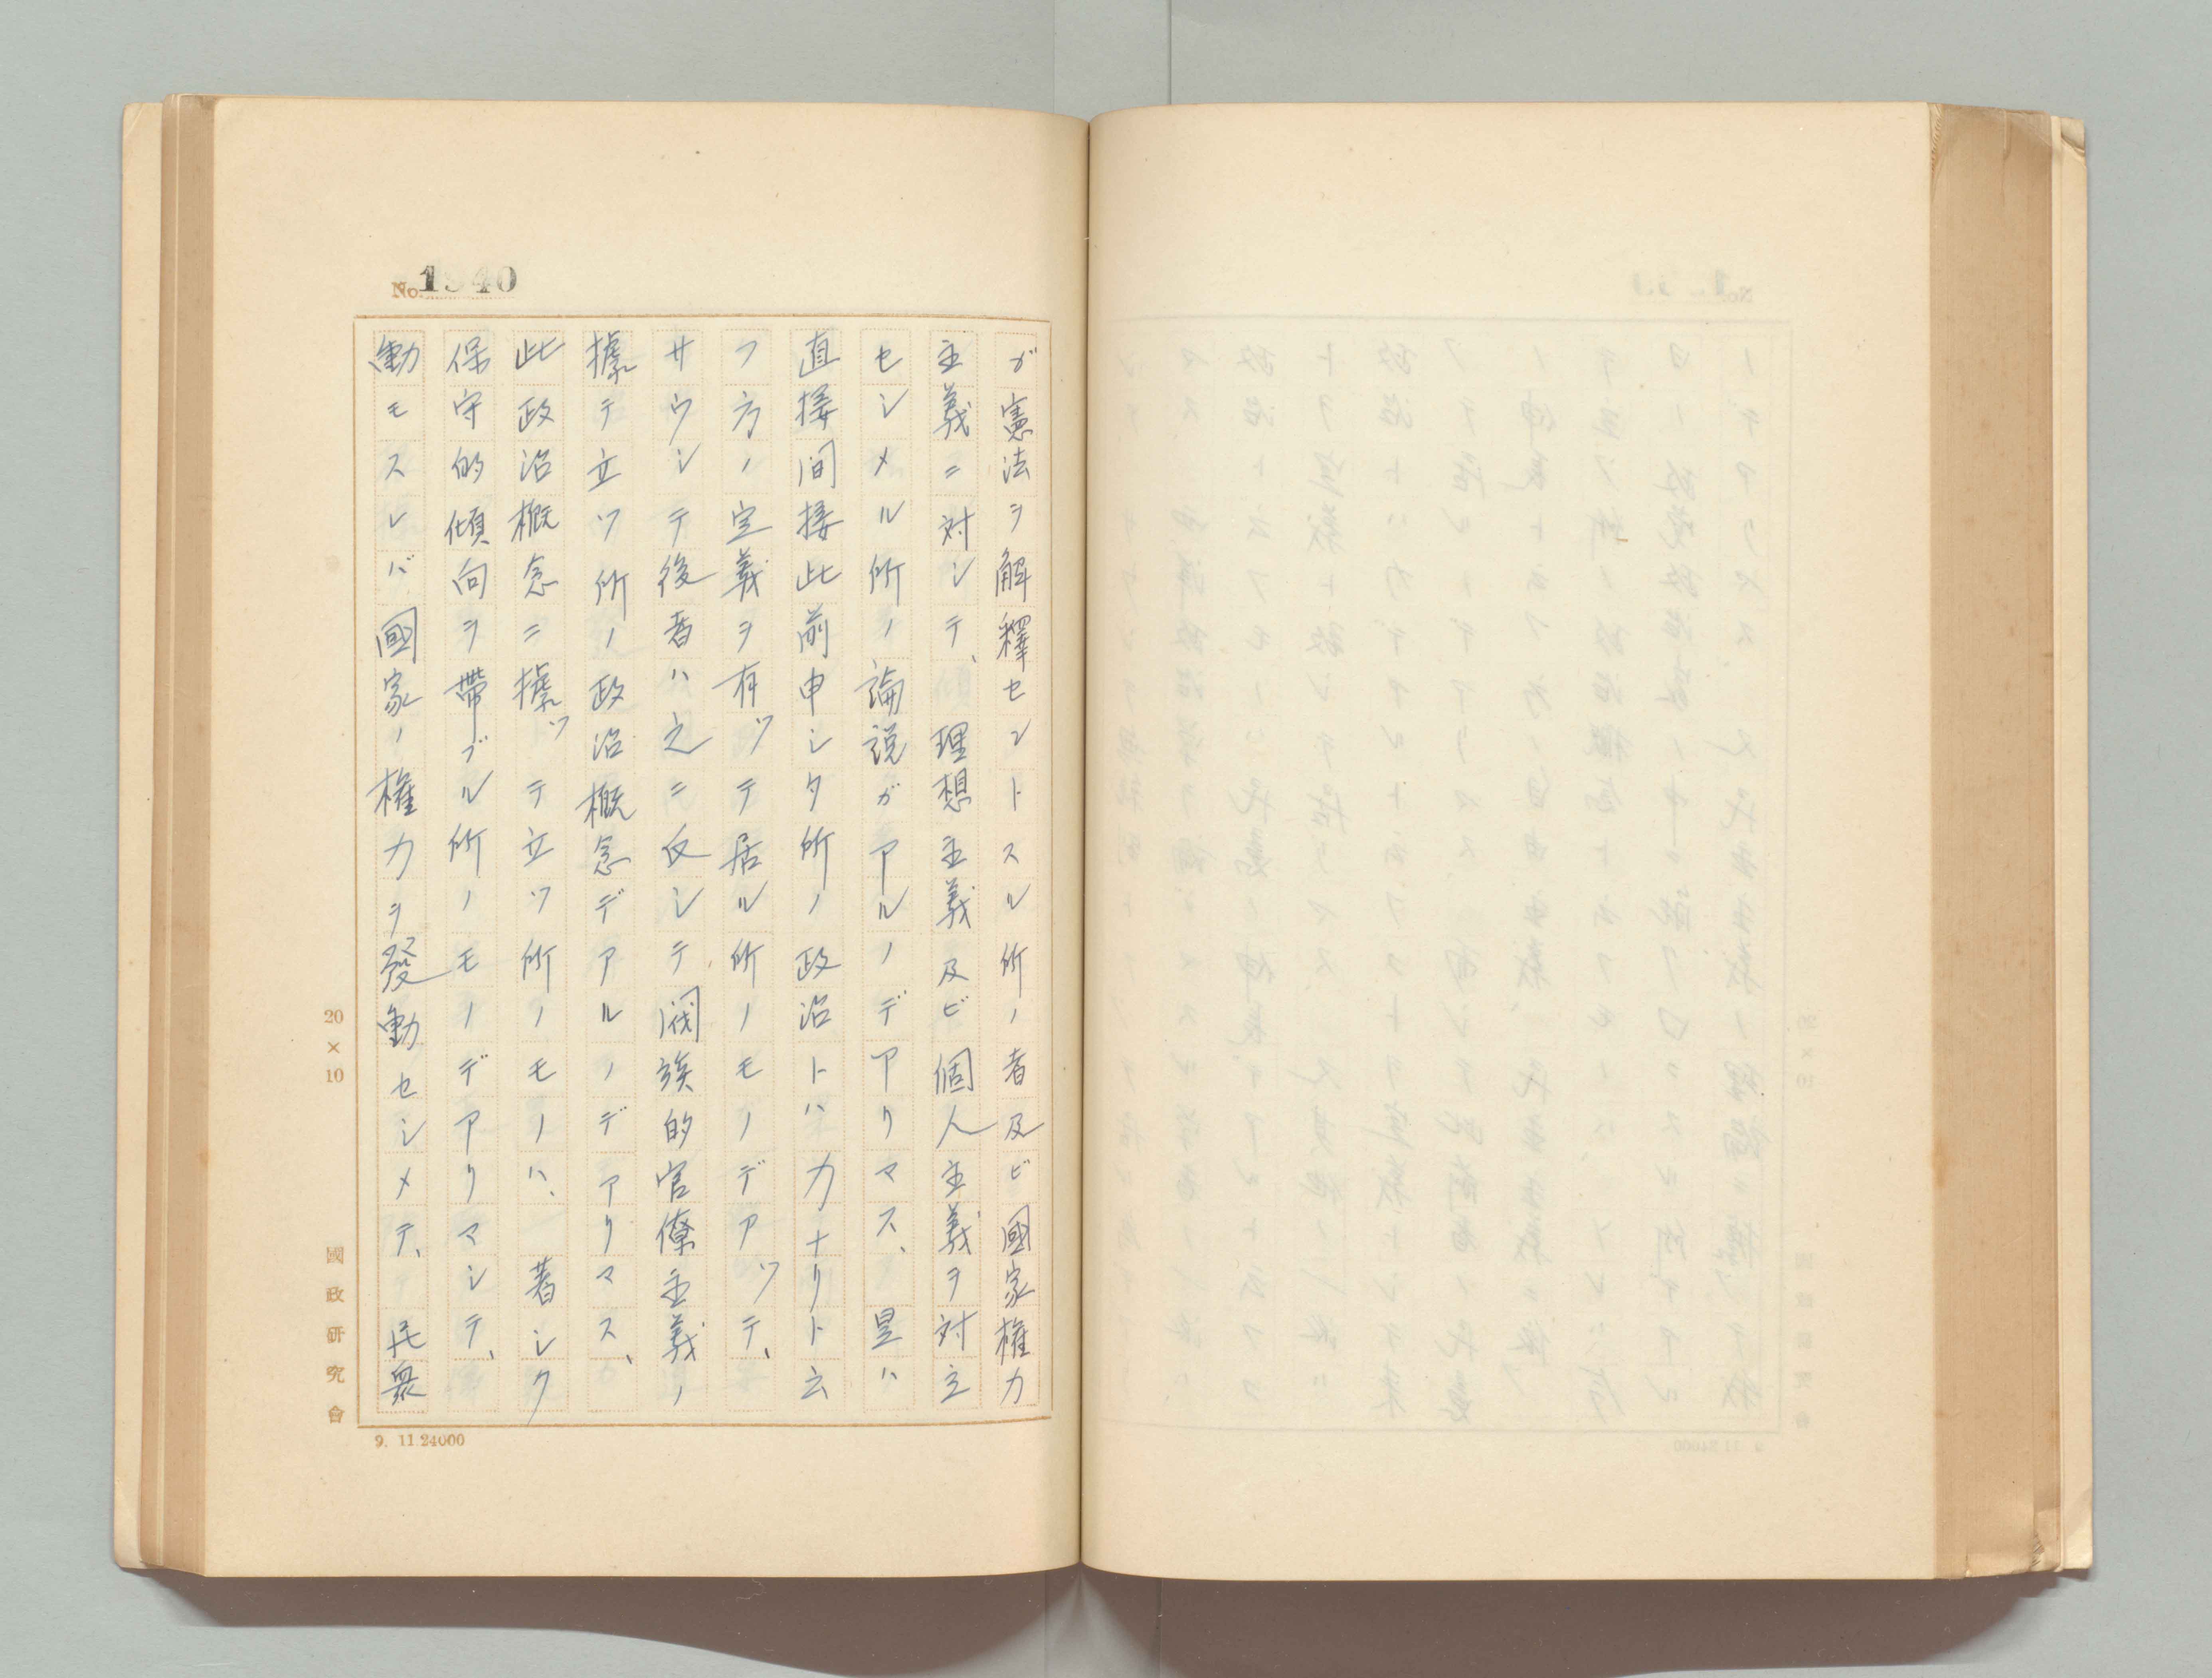 No. 1940
ガ憲法ヲ解釋セントスル所ノ者及ビ國家権力
主義ニ対シテ、理想主義及ビ個人主義ヲ対立
セシメル所ノ論説ガアルノデアリマス、是ハ
直接間接此前申シタ所ノ政治トハ力ナリト云
フ方ノ定義ヲ有ツテ居ル所ノモノデアツテ、
サウシテ後者ハ之ニ反シテ閥族的官僚主義ノ
據テ立ツ所ノ政治概念デアルノデアリマス、
此政治概念ニ據ツテ立ツ所ノモノハ、著シク
保守的傾向ヲ帯ブル所ノモノデアリマシテ、
動モスレバ國家ノ権力ヲ發動セシメテ、民衆
20×10
國政研究會
9. 11 24000